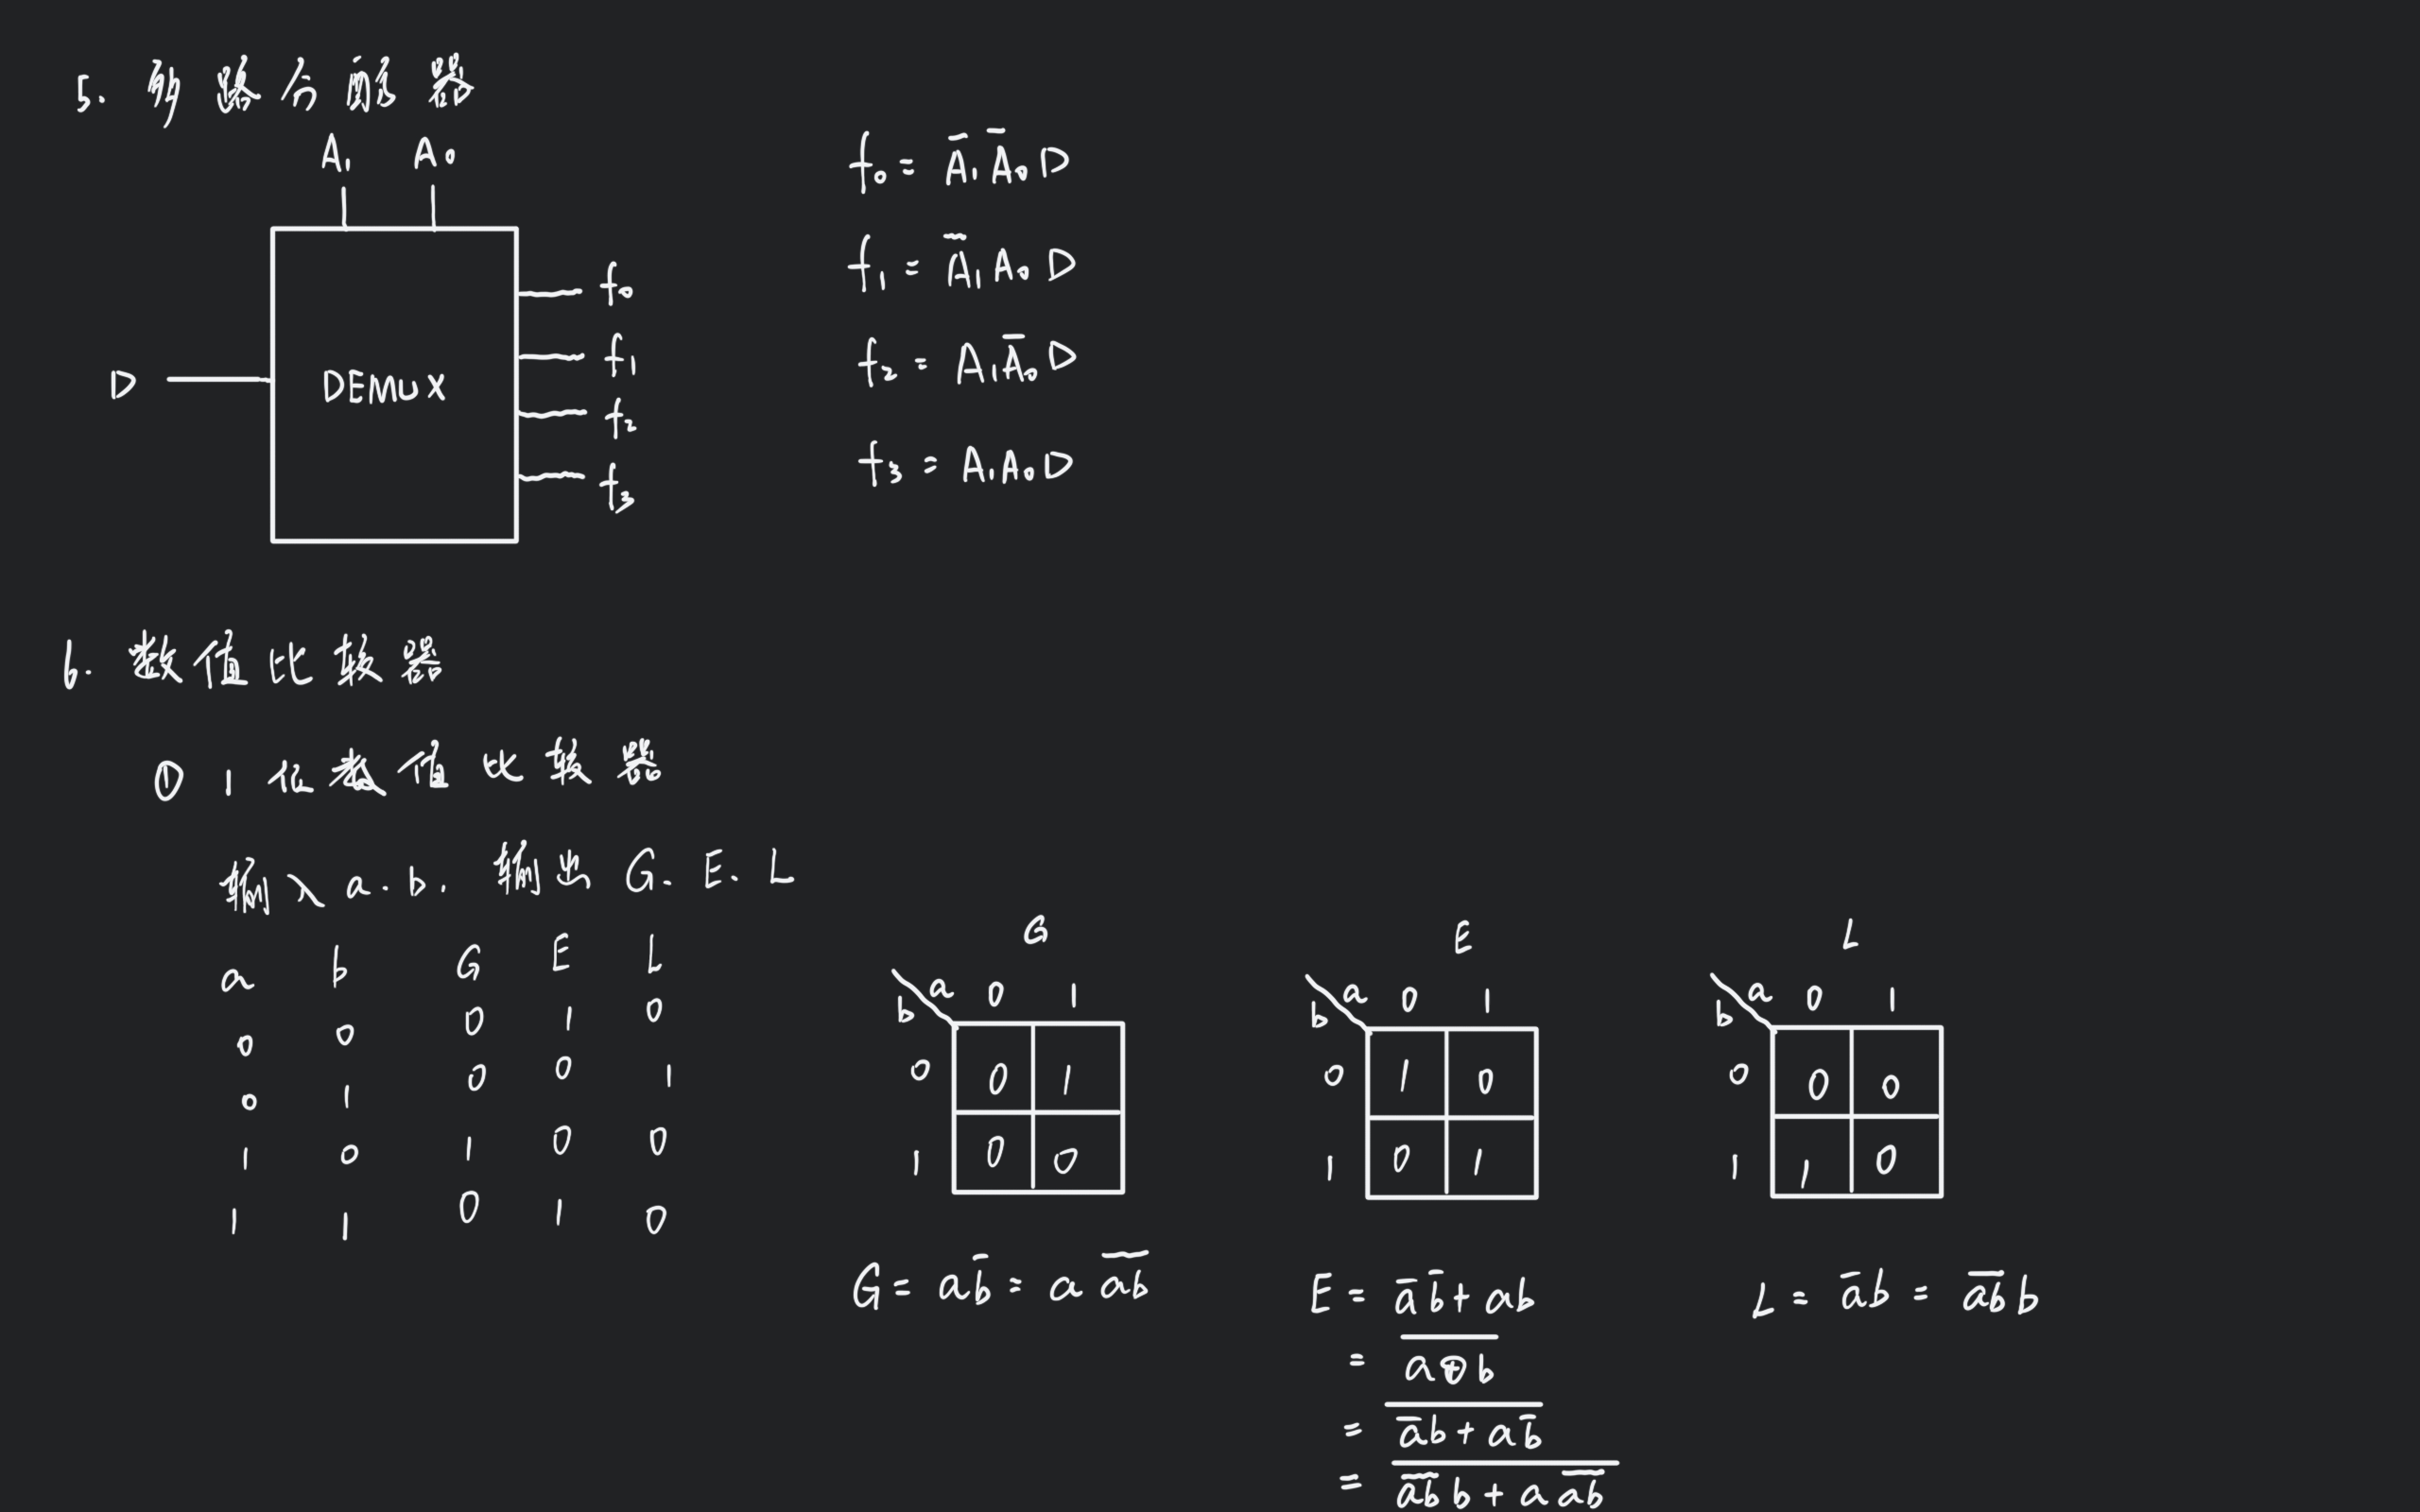 5. 多路分配器
A₁ A₀
D DEMUX
f₀
f₁
f₂
f₃
f₀ = A̅₁A̅₀D
f₁ = A̅₁A₀D
f₂ = A₁A̅₀D
f₃ = A₁A₀D
6. 数值比较器
① 1位数值比较器
输入a.b. 输出G.E.L
a b G E L
0 0 0 1 0
0 1 0 0 1
1 0 1 0 0
1 1 0 1 0
G
b a 0 1
0 0 1
1 0 0
G = ab̅ = a \overline{ab}
E
b a 0 1
0 1 0
1 0 1
E = a̅b̅ + ab
= \overline{a⊕b}
= \overline{a̅b + ab̅}
= \overline{\overline{ab}b + a\overline{ab}}
L
b a 0 1
0 0 0
1 1 0
L = a̅b = \overline{ab}b